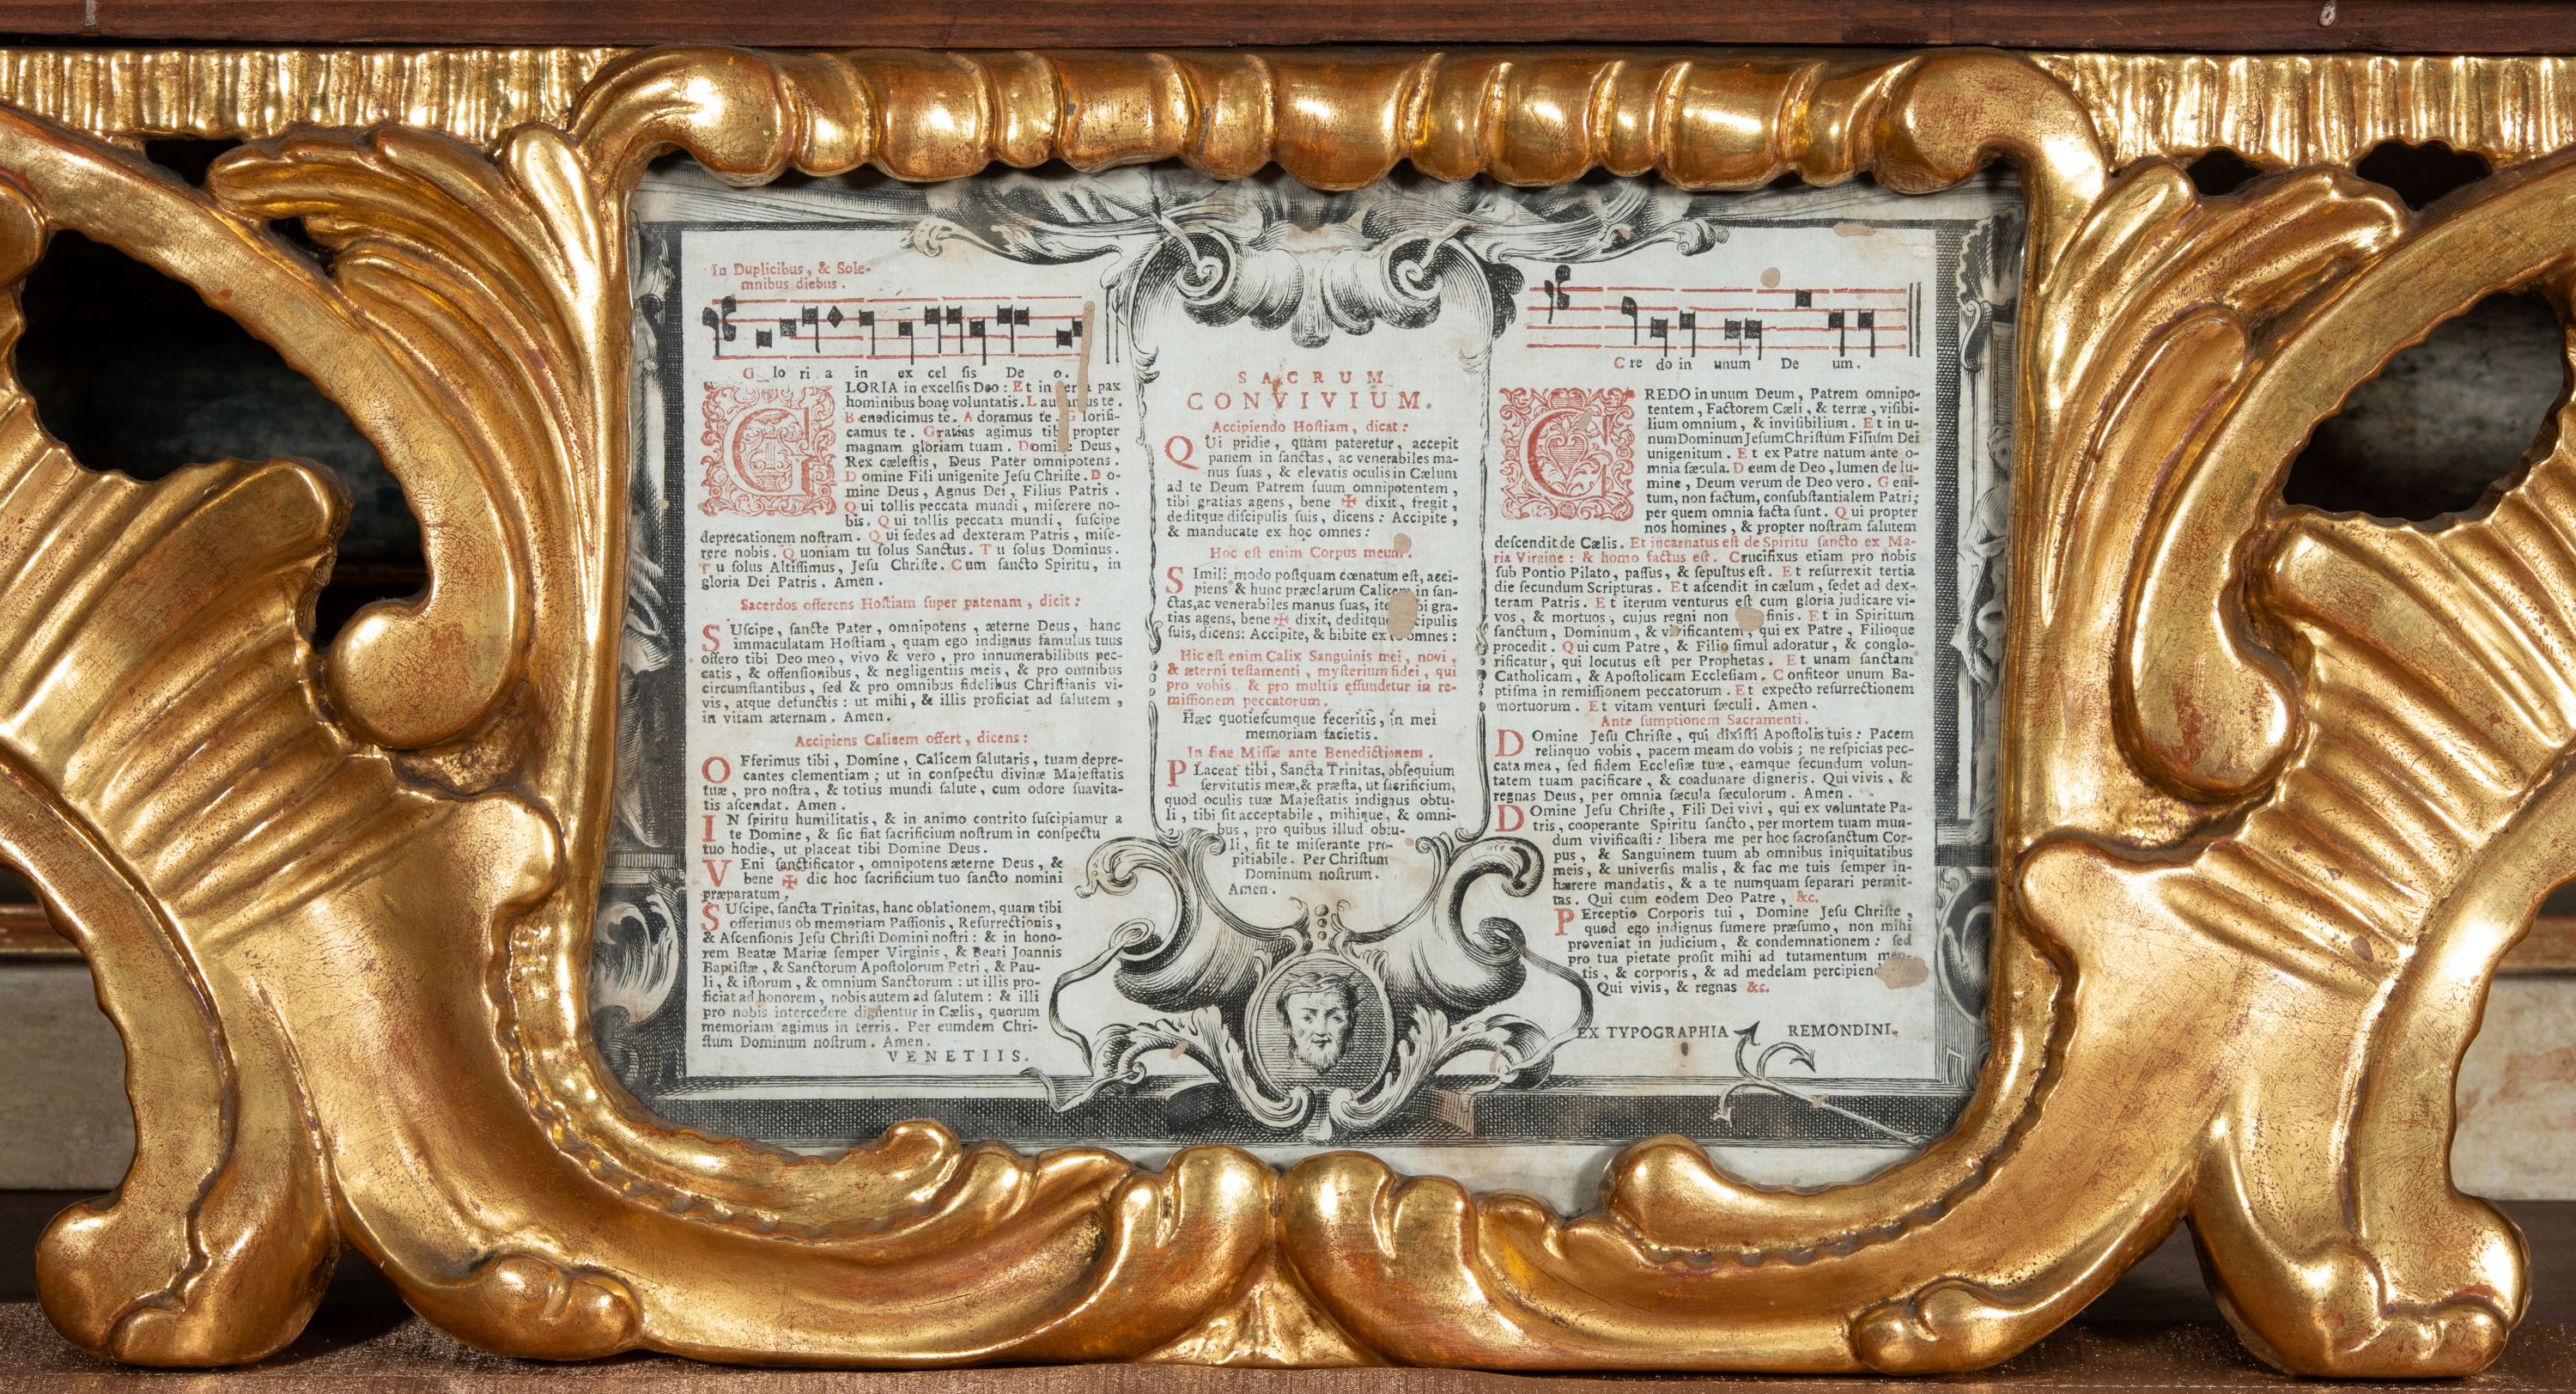 In Duplicibus, & Sole-
mnibus diebus.
G lo ri a in ex cel sis De o.
GLORIA in excelſis Deo: Et in terra pax
hominibus bonę voluntatis. Laudamus te.
Benedicimus te. Adoramus te. Glorifi-
camus te. Gratias agimus tibi propter
magnam gloriam tuam. Domine Deus,
Rex cæleſtis, Deus Pater omnipotens.
Domine Fili unigenite Jeſu Chriſte. Do-
mine Deus, Agnus Dei, Filius Patris.
Qui tollis peccata mundi, miſerere no-
bis. Qui tollis peccata mundi, ſuſcipe
deprecationem noſtram. Qui ſedes ad dexteram Patris, miſe-
rere nobis. Quoniam tu ſolus Sanctus. Tu ſolus Dominus.
Tu ſolus Altiſſimus, Jeſu Chriſte. Cum ſancto Spiritu, in
gloria Dei Patris. Amen.
Sacerdos offerens Hoſtiam ſuper patenam, dicit:
SUſcipe, ſancte Pater, omnipotens, æterne Deus, hanc
immaculatam Hoſtiam, quam ego indignus famulus tuus
offero tibi Deo meo, vivo & vero, pro innumerabilibus pec-
catis, & offenſionibus, & negligentiis meis, & pro omnibus
circumſtantibus, ſed & pro omnibus fidelibus Chriſtianis vi-
vis, atque defunctis: ut mihi, & illis proficiat ad ſalutem,
in vitam æternam. Amen.
Accipiens Calicem offert, dicens:
OFferimus tibi, Domine, Calicem ſalutaris, tuam depre-
cantes clementiam; ut in conſpectu divinæ Majeſtatis
tuæ, pro noſtra, & totius mundi ſalute, cum odore ſuavita-
tis aſcendat. Amen.
IN ſpiritu humilitatis, & in animo contrito ſuſcipiamur a
te Domine, & ſic fiat ſacrificium noſtrum in conſpectu
tuo hodie, ut placeat tibi Domine Deus.
VEni ſanctificator, omnipotens æterne Deus, &
bene ✠ dic hoc ſacrificium tuo ſancto nomini
præparatum.
SUſcipe, ſancta Trinitas, hanc oblationem, quam tibi
offerimus ob memoriam Paſſionis, Reſurrectionis,
& Aſcenſionis Jeſu Chriſti Domini noſtri: & in hono-
rem Beatæ Mariæ ſemper Virginis, & Beati Joannis
Baptiſtæ, & Sanctorum Apoſtolorum Petri, & Pau-
li, & iſtorum, & omnium Sanctorum: ut illis pro-
ficiat ad honorem, nobis autem ad ſalutem: & illi
pro nobis intercedere dignentur in Cælis, quorum
memoriam agimus in terris. Per eumdem Chri-
ſtum Dominum noſtrum. Amen.
VENETIIS.
SACRUM
CONVIVIUM.
Accipiendo Hoſtiam, dicat:
QUi pridie, quam pateretur, accepit
panem in ſanctas, ac venerabiles ma-
nus ſuas, & elevatis oculis in Cælum
ad te Deum Patrem ſuum omnipotentem,
tibi gratias agens, bene ✠ dixit, fregit,
deditque diſcipulis ſuis, dicens: Accipite,
& manducate ex hoc omnes:
Hoc eſt enim Corpus meum.
SImili modo poſtquam cœnatum eſt, acci-
piens & hunc præclarum Calicem in ſan-
ctas, ac venerabiles manus ſuas, item tibi gra-
tias agens, bene ✠ dixit, deditque diſcipulis
ſuis, dicens: Accipite, & bibite ex eo omnes:
Hic eſt enim Calix Sanguinis mei, novi,
& æterni teſtamenti, myſterium fidei, qui
pro vobis, & pro multis effundetur in re-
miſſionem peccatorum.
Hæc quotieſcumque feceritis, in mei
memoriam facietis.
In fine Miſſæ ante Benedictionem.
PLaceat tibi, Sancta Trinitas, obſequium
ſervitutis meæ, & præſta, ut ſacrificium,
quod oculis tuæ Majeſtatis indignus obtu-
li, tibi ſit acceptabile, mihique, & omni-
bus, pro quibus illud obtu-
li, ſit te miſerante pro-
pitiabile. Per Chriſtum
Dominum noſtrum.
Amen.
C re do in unum De um.
CREDO in unum Deum, Patrem omnipo-
tentem, Factorem Cæli, & terræ, viſibi-
lium omnium, & inviſibilium. Et in u-
num Dominum Jeſum Chriſtum Filium Dei
unigenitum. Et ex Patre natum ante o-
mnia ſæcula. Deum de Deo, lumen de lu-
mine, Deum verum de Deo vero. Geni-
tum, non factum, conſubſtantialem Patri;
per quem omnia facta ſunt. Qui propter
nos homines, & propter noſtram ſalutem
deſcendit de Cælis. Et incarnatus eſt de Spiritu ſancto ex Ma-
ria Virgine: & homo factus eſt. Crucifixus etiam pro nobis
ſub Pontio Pilato, paſſus, & ſepultus eſt. Et reſurrexit tertia
die ſecundum Scripturas. Et aſcendit in cælum, ſedet ad dex-
teram Patris. Et iterum venturus eſt cum gloria judicare vi-
vos, & mortuos, cujus regni non finis. Et in Spiritum
ſanctum, Dominum, & vivificantem, qui ex Patre, Filioque
procedit. Qui cum Patre, & Filio ſimul adoratur, & conglo-
rificatur, qui locutus eſt per Prophetas. Et unam ſanctam
Catholicam, & Apoſtolicam Eccleſiam. Confiteor unum Ba-
ptiſma in remiſſionem peccatorum. Et expecto reſurrectionem
mortuorum. Et vitam venturi ſæculi. Amen.
Ante ſumptionem Sacramenti.
DOmine Jeſu Chriſte, qui dixiſti Apoſtolis tuis: Pacem
relinquo vobis, pacem meam do vobis; ne reſpicias pec-
cata mea, ſed fidem Eccleſiæ tuæ, eamque ſecundum volun-
tatem tuam pacificare, & coadunare digneris. Qui vivis, &
regnas Deus, per omnia ſæcula ſæculorum. Amen.
DOmine Jeſu Chriſte, Fili Dei vivi, qui ex voluntate Pa-
tris, cooperante Spiritu ſancto, per mortem tuam mun-
dum vivificaſti: libera me per hoc ſacroſanctum Cor-
pus, & Sanguinem tuum ab omnibus iniquitatibus
meis, & univerſis malis, & fac me tuis ſemper in-
hærere mandatis, & a te numquam ſeparari permit-
tas. Qui cum eodem Deo Patre, &c.
PErceptio Corporis tui, Domine Jeſu Chriſte,
quod ego indignus ſumere præſumo, non mihi
proveniat in judicium, & condemnationem: ſed
pro tua pietate proſit mihi ad tutamentum men-
tis, & corporis, & ad medelam
Qui vivis, & regnas &c.
EX TYPOGRAPHIA REMONDINI.